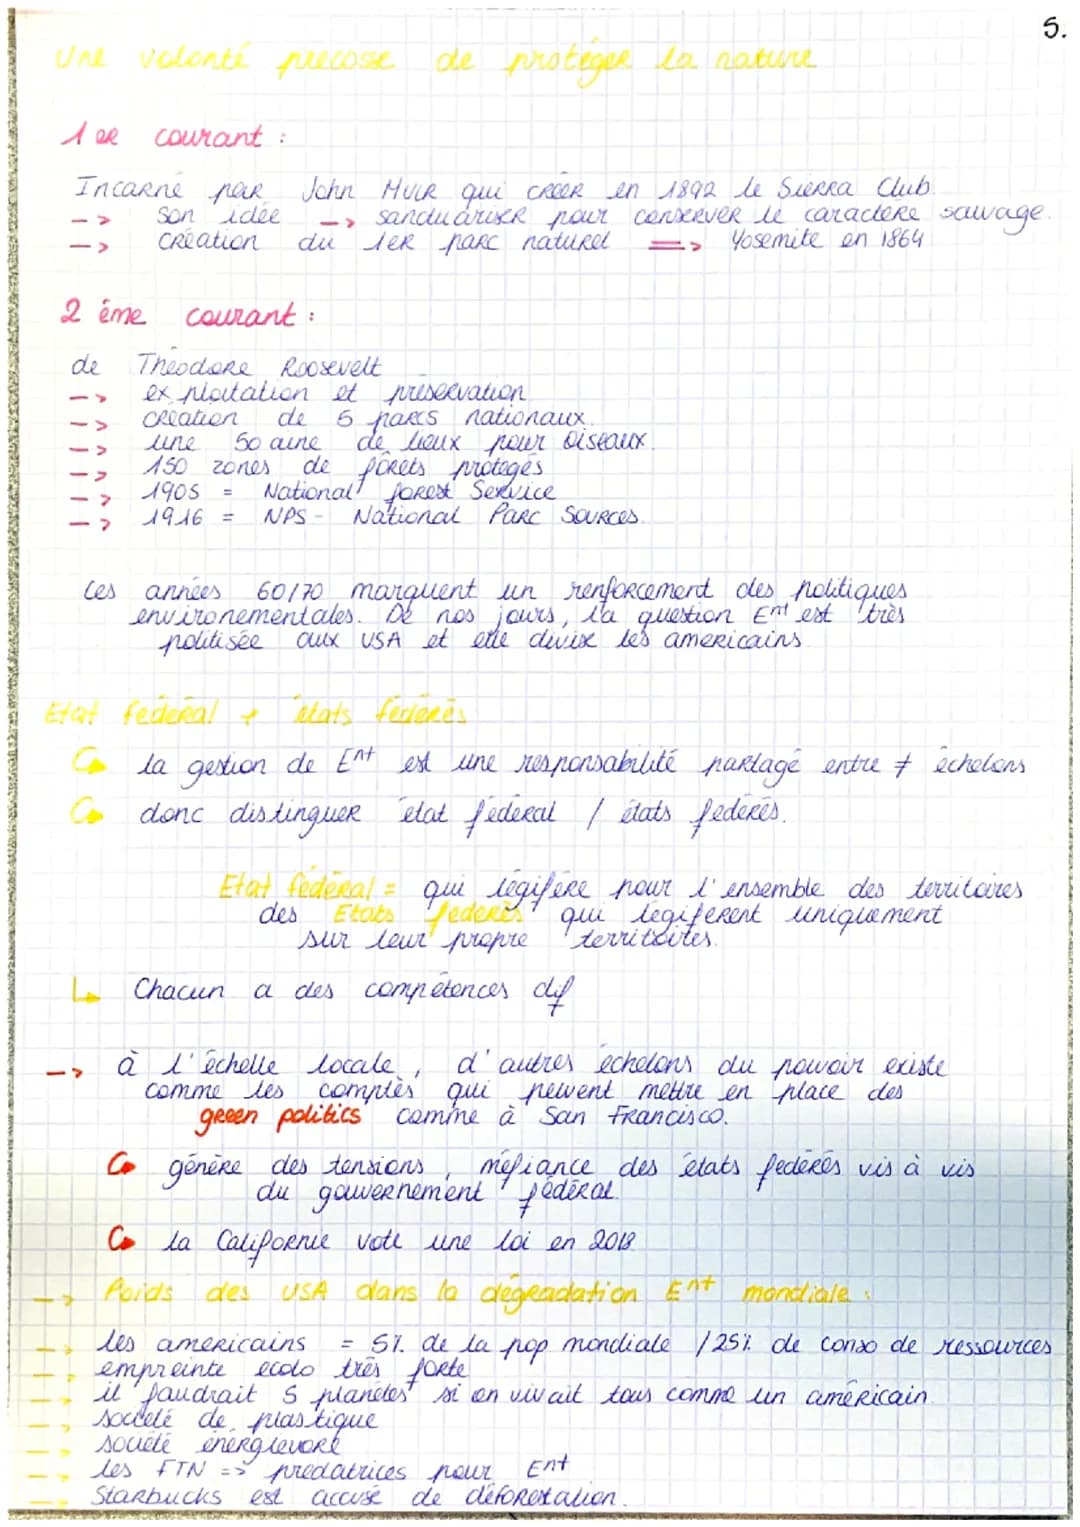 5.
Une volonté precose de protéger la nature
1er courant :
Incarné par John Muir qui créer en 1892 le Sierra Club.
--> son idée --> sanctuariser pour conserver le caractère sauvage.
--> création du 1er parc naturel ==> Yosemite en 1864
2 éme courant :
de Théodore Roosevelt
--> exploitation et préservation
--> création de 5 parcs nationaux.
--> une 50 aine de lieux pour oiseaux.
--> 150 zones de fôrets protégés
--> 1905 = National forest Service
--> 1916 = NPS - National Parc Sources.
Les années 60/70 marquent un renforcement des politiques
environementales. De nos jours, la question Ent est très
politisée aux USA et elle divise les américains.
Etat fédéral + états fédérés
la gestion de Ent est une responsabilité partagé entre ≠ échelons
donc distinguer état fédéral / états fédérés.
Etat fédéral = qui légifère pour l'ensemble des territoires
des Etats fédérés qui légifèrent uniquement
sur leur propre territoires.
Chacun a des compétences dif
--> à l'échelle locale, d'autres échelons du pouvoir existe
comme les comptès qui peuvent mettre en place des
green politics comme à San Francisco.
génère des tensions, méfiance des états fédérés vis à vis
du gouvernement fédéral.
la Californie vote une loi en 2018
--> Poids des USA dans la dégradation Ent mondiale :
--> les américains = 5% de la pop mondiale / 25% de conso de ressources
--> empreinte écolo très forte
--> il faudrait 5 planètes si on vivait tous comme un américain.
--> société de plastique
--> société énergievore
--> les FTN => prédatrices pour Ent
--> Starbucks est accusé de déforestation.